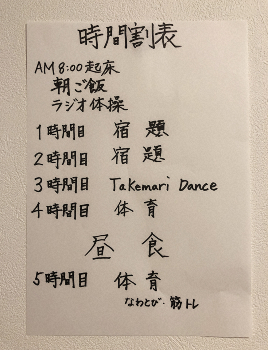 時間割表
AM 8:00 起床
朝ご飯
ラジオ体操
1時間目 宿題
2時間目 宿題
3時間目 Takemari Dance
4時間目 体育
昼食
5時間目 体育
なわとび・筋トレ